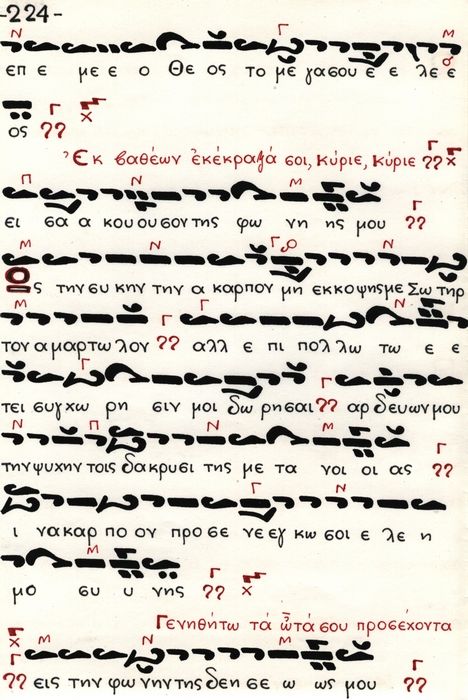 -224-
επ ε με ε ο Θε ος το με γα σου ε ε λε ε
ος
Ἐκ βαθέων ἐκέκραξά σοι, κύριε, κύριε
ει σα α κου ου σον της φω νη ης μου
Ος την συ κην την α καρπον μη εκκοψης με Σω τηρ
τον α μαρτω λον αλλ ε πι πολλω τω ε ε
τει συγχω ρη σιν μοι δω ρησαι αρ δευων μου
την ψυχην τοις δακρυσι της με τα νοι οι ας
ι να καρ πο ον προ σε νε εγ κω σοι ε λε η
μο συ υ νης
Γενηθήτω τά ὦτά σου προσέχοντα
εις την φω νην της δεη σε ω ως μου